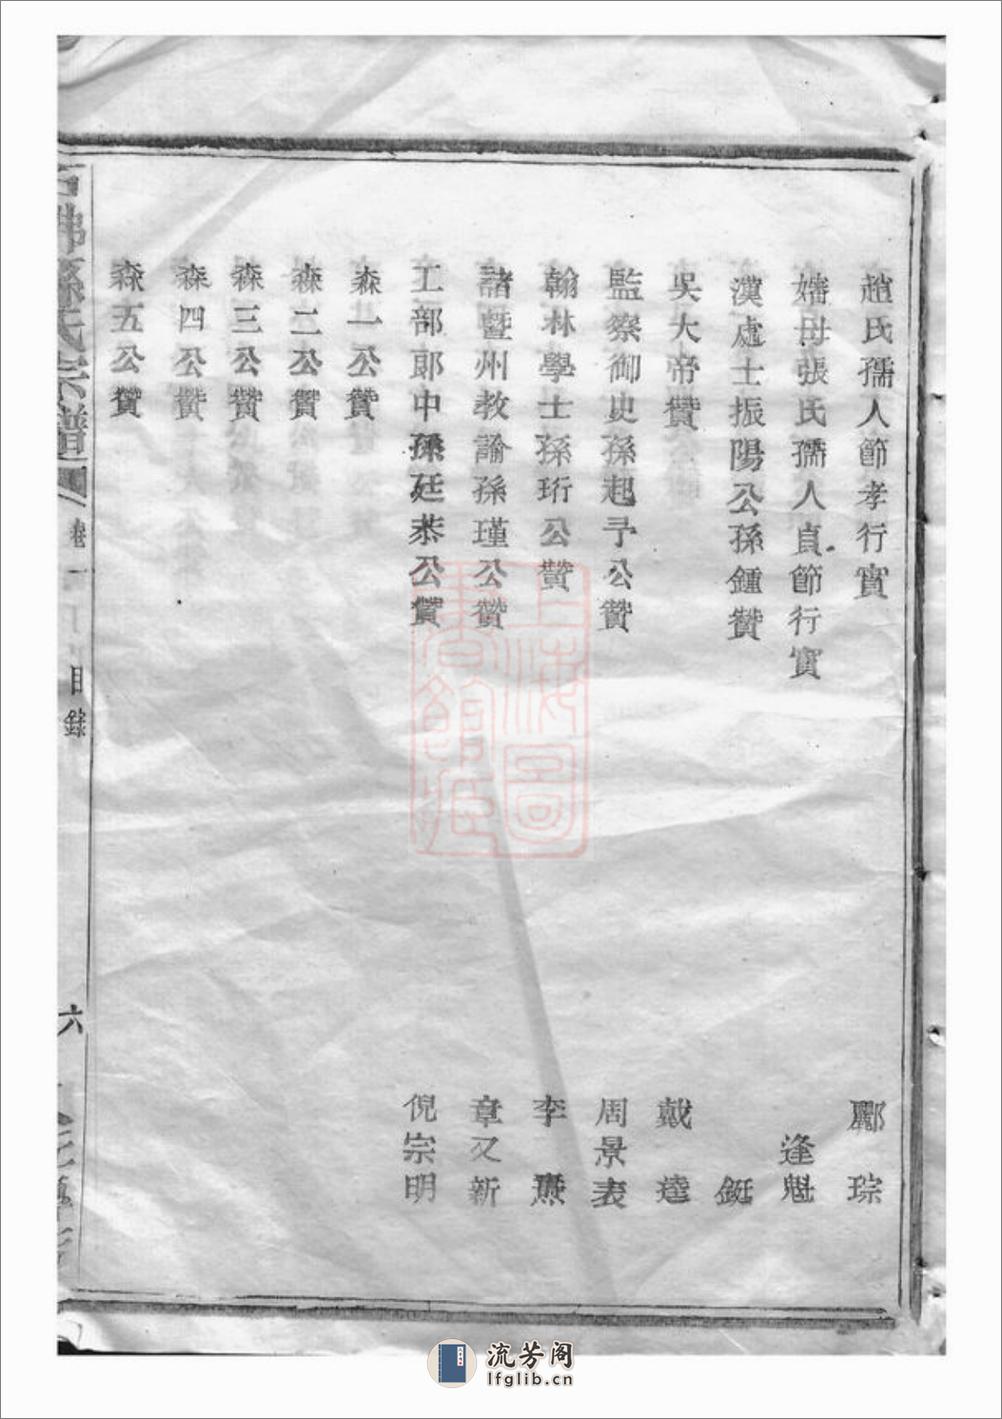 趙氏孺人節孝行實 酈琮
嬸母張氏孺人貞節行實 逢魁
漢處士振陽公孫鍾贊 鋌
吳大帝贊 戴達
監察御史孫起予公贊 周景表
翰林學士孫珩公贊 李燾
諸暨州教諭孫瑾公贊 章又新
工部郎中孫廷恭公贊 倪宗明
森一公贊
森二公贊
森三公贊
森四公贊
森五公贊
孫氏宗譜 卷一 目錄 六
上海圖書館藏
流芳阁
lfglib.cn